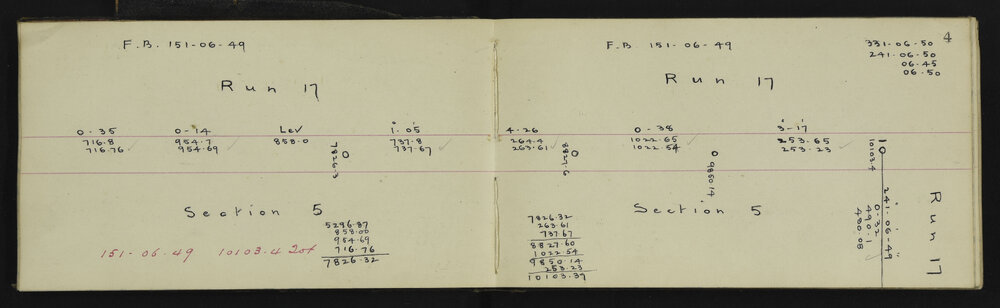 F.B. 151-06-49
Run 17
0-35 0-14 Lev 1°05'
716.8 954.7 858.0 737.8
716.76 954.69 737.67
7826.3
Section 5
5296.87
858.00
954.69
716.76
7826.32
151-06-49 10103.4 Tot
4
F.B. 151-06-49
331-06-50
241-06-50
06-45
06-50
Run 17
4-26 0-38 3-17
264.4 1022.65 253.65
263.61 1022.54 253.23
8827.6
9850.14
10103.4
Section 5
7826.32
263.61
737.67
8827.60
1022.54
9850.14
253.23
10103.37
241-06-49
0-32
490.1
490.08
Run 17